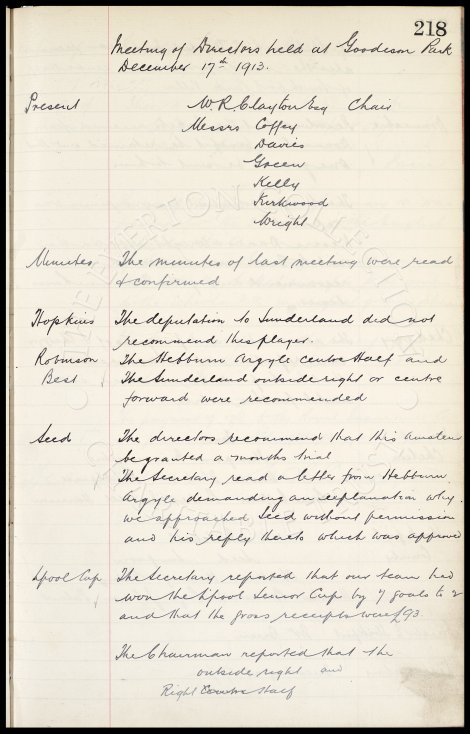 218
Meeting of Directors held at Goodison Park
December 17th 1913.
Present W. R. Clayton Esq Chair
Messrs Coffey
Davies
Green
Kelly
Kirkwood
Wright
Minutes The minutes of last meeting were read
& confirmed
Hopkins The deputation to Sunderland did not
recommend this player.
Robinson The Hebburn Argyle centre Half and
Best The Sunderland outside right or centre
forward were recommended
Seed The directors recommend that this Amateur
be granted a months trial
The Secretary read a letter from Hebburn
Argyle demanding an explanation why
we approached Seed without permission
and his reply thereto which was approved
Lpool Cup The Secretary reported that our team had
won the Lpool Senior Cup by 7 goals to 2
and that the gross receipts were £93
The Chairman reported that the
outside right and
Right Half